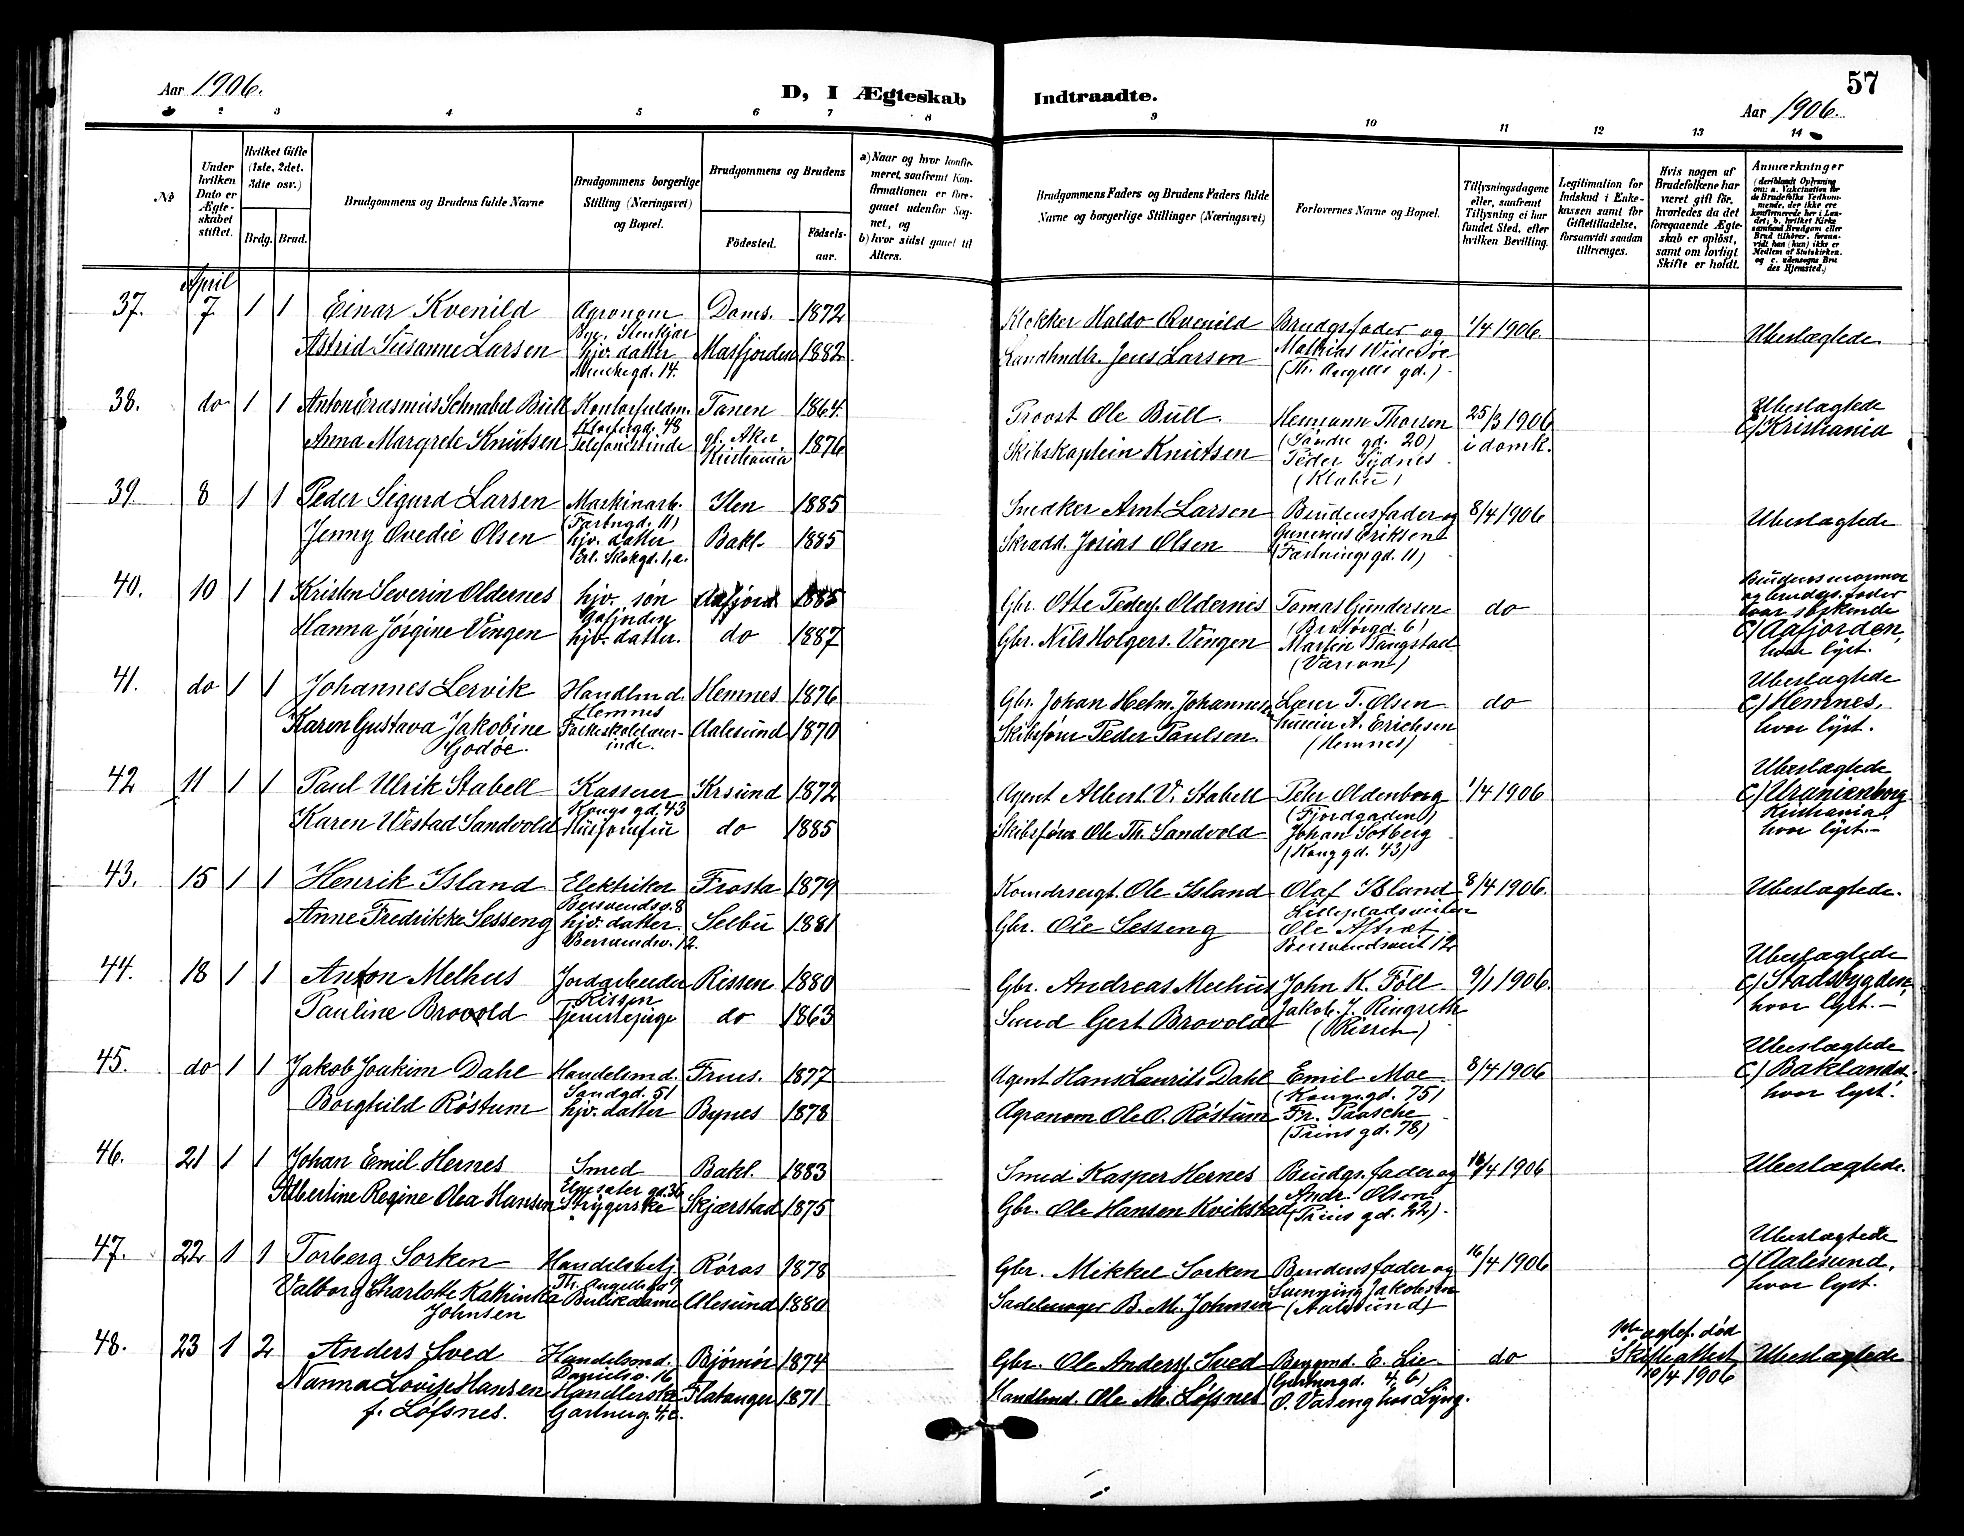 Aar 1906.
D, I Ægteskab Indtraadte.
57
Aar 1906.
1 2 3 4 5 6 7 8 9 10 11 12 13 14
No
Under hvilken Dato er Ægteskabet stiftet.
Hvilket Gifte (1ste, 2det, 3die osv.)
Brdg. Brud.
Brudgommens og Brudens fulde Navne
Brudgommens borgerlige Stilling (Næringsvei) og Bopæl.
Brudgommens og Brudens
Fødested.
Fødselsaar.
a) Naar og hvor konfirmeret, saafremt Konfirmationen er foregaaet udenfor Sognet, og
b) hvor sidst gaaet til Alters.
Brudgommens Faders og Brudens Faders fulde Navne og borgerlige Stillinger (Næringsvei)
Forlovernes Navne og Bopæl.
Tillysningsdagene eller, saafremt Tillysning ei har fundet Sted, efter hvilken Bevilling.
Legitimation for Indskud i Enkekassen samt for Giftetilladelse, forsaavidt saadan tiltrænges.
Hvis nogen af Brudefolkene har været gift før, hvorledes da det foregaaende Ægteskab er opløst, samt om lovligt Skifte er holdt.
Anmærkninger
(deriblandt Oplysning om: a. Vaccination for de Brudefolks Vedkommende, der ikke ere konfirmerede her i Landet; b. hvilket Kirkesamfund Brudgom eller Brud tilhører, forsaavidt han (hun) ikke er Medlem af Statskirken, og c. udensogns Brudes Hjemsted.)
April
37. 7 1 1 Einar Kvenild Agronom Doms. 1872 Klokker Haldo Qvenild Brudgs. fader og 1/4 1906
Bye. Stenkjær
Astrid Susanne Larsen hjv. datter Masfjorden 1882 Landhndlr. Jens Larsen Mathias Widerøe Ubeslægtede
Munkegd. 14. (Th. Angells gd.)
38. do 1 1 Anton Erasmus Schnabel Bull Kontorfuldm. Tanen 1864 Provst Ole Bull. Hemann Thorsen 25/3 1906 Ubeslægtede
Klostergd. 48 (Søndre gd. 20) i domk. c/ Kristiania
Anna Margrete Knutsen Telefonistinde gl. Aker Kristiania 1876 Skibskaptein Knutsen Peder Sydnes
(Klabu)
39. 8 1 1 Peder Sigurd Larsen Maskinarb. Ilen 1885 Snedker Arnt Larsen Brudens fader og 8/4 1906
(Fæstngd. 11)
Jenny Ovedie Olsen hjv. datter Bakl. 1885 Skradd. Josias Olsen Gunerius Eriksen Ubeslægtede
Erl. Skakgd. 1,a. (Fæstningsgd. 11)
40. 10 1 1 Kristen Severin Oldernes hjv. søn Aafjord. 1885 Gbr. Otte Peders. Oldernes Tomas Gundersen do Brudens mormor og brudgs. fader
Aafjorden (Brattørgd. 6) var søskende
Hanna Jørgine Vingen hjv. datter. do 1887 Gbr. Nils Holgers. Vingen Martin Tangstad c/ Aafjorden,
hvor lyst.
41. do 1 1 Johannes Lervik Handlmd. Hemnes 1876 Gbr. Johan Helm. Johannesen Lærer T. Olsen do Ubeslægtede
Hemnes c/ Hemnes,
Karen Gustava Jakobine Godøe. Folkeskolelærerinde. Aalesund 1870 Skibsfører Peder Paulsen. A. Erichsen hvor lyst.
(Hemnes)
42 11 1 1 Paul Ulrik Stabell Kasserer Krsund 1872 Agent Albert. V. Stabell Peter Oldenborg 1/4 1906 Ubeslægtede
Kongsgd. 43 (Fjordgaden) c/ Uranienborg Kristiania,
Karen Westad Sandvold Husjomfru do 1885 Skibsfører Ole Th. Sandvold Johan Solberg hvor lyst. -
(Kongsgd. 43)
43. 15 1 1 Henrik Island Elektriker Frosta 1879 Komdrsergt. Ole Island Olaf Island 8/4 1906. Ubeslægtede.
Bersvendsv. 8
Anne Fredrikke Sesseng hjv. datter. Selbu 1881 Gbr. Ole Sesseng Ole Aftret
Bersvendsv. 12. Bersvendsveit 12
44. 18 1 1 Anton Melhus Jordarbeider Rissen 1880 Gbr. Andreas Meehus John K. Føll 9/1 1906. Ubeslægtede
Rissen c/ Stadsbygden,
Pauline Brovold Tjenestepige do 1863 Smed Gert Brovold Jakob. J. Ringseth hvor lyst. -
(Rissen)
45. do 1 1 Jakob Joakim Dahl Handelsmd. Frues. 1877 Agent Hans Laurits Dahl Emil Moe 8/4 1906 Ubeslægtede
Sandgd. 51 (Kongsgd. 75) c/ Baklandet
Borghild Røstum hjv. datter Bynes 1878 Agronom Ole O. Røstum Fr. Paasche hvor lyst.
(Prinsgd. 78)
46. 21 1 1 Johan Emil Hernes Smed Bakl. 1883 Smed Kasper Hernes Brudgs. fader og 16/4 1906 Ubeslægtede.
Elgesætergd. 36
Albertine Regine Olea Hansen Strygerske Skjærstad 1875 Gbr. Ole Hansen Kvikstad Andr. Olsen
(Prins gd. 22)
47. 22 1 1 Torberg Sorken Handelsbetj. Røros 1878 Gbr. Mikkel Sorken Brudens fader og 16/4 1906 Ubeslægtede
c/ Aalesund,
Valborg Charlotte Kathinka Johnsen Butikdame Alesund 1880 Sadelmager B. M. Johnsen Jakobsen hvor lyst.
(Aalesund)
48. 23 1 2 Anders Sved Handelsmd. Bjørnør 1874 Gbr. Ole Anders. Sved Brygmd. E. Lie do 1ste ægtef. død Ubeslægtede
Danielsv. 16 4, 6) Skifteattest
Nanna Lovise Hansen f. Løfsnes. Handlerske Flatanger 1871 Handlmd. Ole M. Løfsnes O. Vaseng hos Lyng. 10/4 1906
Gartnerg. 4,c.